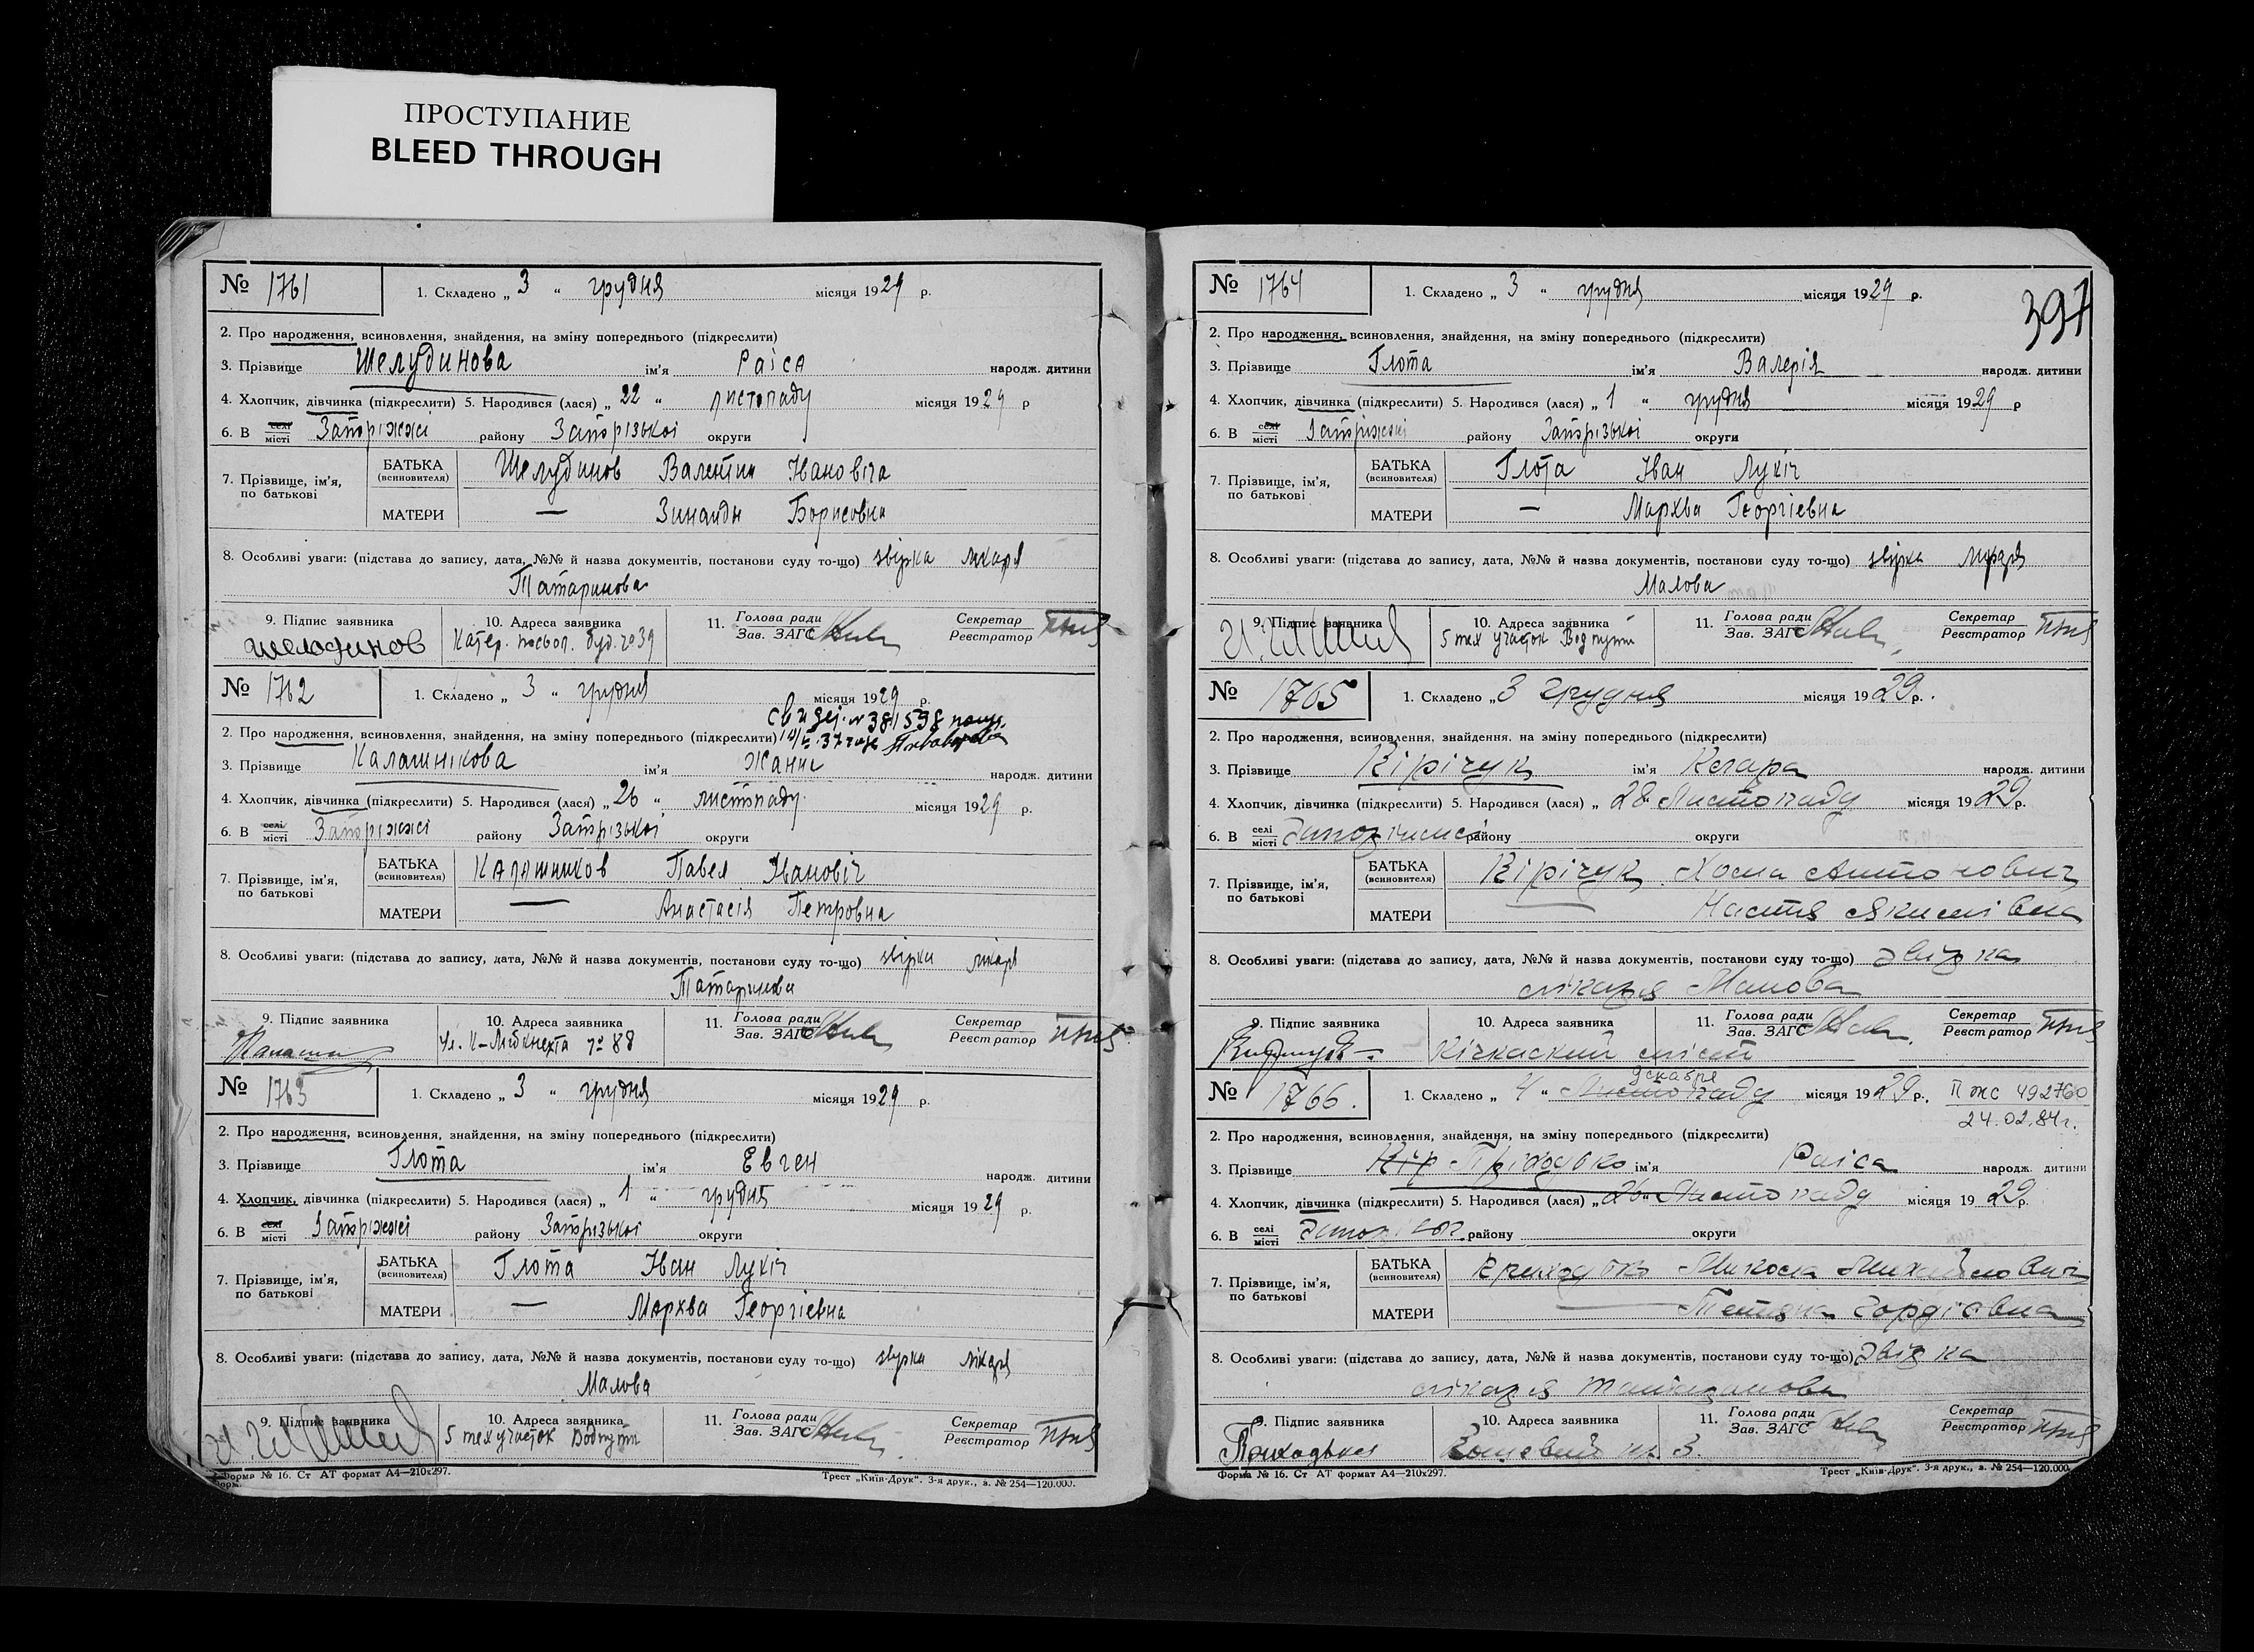 ПРОСТУПАНИЕ
BLEED THROUGH
№ 1761 1. Складено „ 3 “ грудня місяця 1929 р.
2. Про народження, всиновлення, знайдення, на зміну попереднього (підкреслити)
3. Прізвище Шелудинова ім'я Раіса народж. дитини
4. Хлопчик, дівчинка (підкреслити) 5. Народився (лася) „ 22 “ листопаду місяця 1929 р
6. В селі місті Запоріжжі району Запорізької округи
7. Прізвище, ім'я, по батькові
БАТЬКА (всиновителя) Шелудинов Валентин Івановіч
МАТЕРИ — Зинаида Борисовна
8. Особливі уваги: (підстава до запису, дата, №№ й назва документів, постанови суду то-що) звірка лікаря
Татаринова
9. Підпис заявника Шелюдинов
10. Адреса заявника Катер. посьол. буд. № 39
11. Голова ради Зав. ЗАГС
Секретар Реєстратор
№ 1762 1. Складено „ 3 “ грудня місяця 1929 р.
2. Про народження, всиновлення, знайдення, на зміну попереднього (підкреслити)
3. Прізвище Калашнікова ім'я Жанна народж. дитини
4. Хлопчик, дівчинка (підкреслити) 5. Народився (лася) „ 26 “ листопаду місяця 1929 р.
6. В селі місті Запоріжжі району Запорізької округи
7. Прізвище, ім'я, по батькові
БАТЬКА (всиновителя) Калашников Павел Івановіч
МАТЕРИ — Анастасія Петровна
8. Особливі уваги: (підстава до запису, дата, №№ й назва документів, постанови суду то-що) звірка лікаря
Татаринова
9. Підпис заявника
10. Адреса заявника Ул. К-Лібкнехта № 88
11. Голова ради Зав. ЗАГС
Секретар Реєстратор
№ 1763 1. Складено „ 3 “ грудня місяця 1929 р.
2. Про народження, всиновлення, знайдення, на зміну попереднього (підкреслити)
3. Прізвище Глота ім'я Евген народж. дитини
4. Хлопчик, дівчинка (підкреслити) 5. Народився (лася) „ 1 “ грудня місяця 1929 р.
6. В селі місті Запоріжжі району Запорізької округи
7. Прізвище, ім'я, по батькові
БАТЬКА (всиновителя) Глота Іван Лукіч
МАТЕРИ — Мархва Георгіевна
8. Особливі уваги: (підстава до запису, дата, №№ й назва документів, постанови суду то-що) звірка лікаря
Малова
9. Підпис заявника
10. Адреса заявника 5 тех участок Водпути
11. Голова ради Зав. ЗАГС
Секретар Реєстратор
Форма № 16. Ст АТ формат А4—210х297.
Трест „Київ-Друк“. 3-я друк., з. № 254—120.000.
397
№ 1764 1. Складено „ 3 “ грудня місяця 1929 р.
2. Про народження, всиновлення, знайдення, на зміну попереднього (підкреслити)
3. Прізвище Глота ім'я Валерія народж. дитини
4. Хлопчик, дівчинка (підкреслити) 5. Народився (лася) „ 1 “ грудня місяця 1929 р
6. В селі місті Запоріжжі району Запорізької округи
7. Прізвище, ім'я, по батькові
БАТЬКА (всиновителя) Глота Іван Лукіч
МАТЕРИ — Мархва Георгіевна
8. Особливі уваги: (підстава до запису, дата, №№ й назва документів, постанови суду то-що) звірка лікаря
Малова
9. Підпис заявника
10. Адреса заявника 5 тех участок Водпути
11. Голова ради Зав. ЗАГС
Секретар Реєстратор
№ 1765 1. Складено „ 3 грудня місяця 1929 р.
2. Про народження, всиновлення, знайдення, на зміну попереднього (підкреслити)
3. Прізвище Кірічук ім'я Клара народж. дитини
4. Хлопчик, дівчинка (підкреслити) 5. Народився (лася) „ 28 “ Листопаду місяця 1929 р.
6. В селі місті району округи
7. Прізвище, ім'я, по батькові
БАТЬКА (всиновителя) Кірічук Хома Антонович
МАТЕРИ — Настя Якимівна
8. Особливі уваги: (підстава до запису, дата, №№ й назва документів, постанови суду то-що) звірка
лікаря Малова
9. Підпис заявника
10. Адреса заявника Кічкаский міст
11. Голова ради Зав. ЗАГС
Секретар Реєстратор
№ 1766. 1. Складено „ 4 “ Листопаду декабря місяця 1929 р. П жс 492760
24.02.84г.
2. Про народження, всиновлення, знайдення, на зміну попереднього (підкреслити)
3. Прізвище Кір Прікодько ім'я Раіса народж. дитини
4. Хлопчик, дівчинка (підкреслити) 5. Народився (лася) „ 26 “ Листопаду місяця 1929 р.
6. В селі місті району округи
7. Прізвище, ім'я, по батькові
БАТЬКА (всиновителя) Приходько Микола Михайлович
МАТЕРИ Тетяна Гордіевна
8. Особливі уваги: (підстава до запису, дата, №№ й назва документів, постанови суду то-що) звірка
лікаря Татаринова
9. Підпис заявника Приходько
10. Адреса заявника 3.
11. Голова ради Зав. ЗАГС
Секретар Реєстратор
Форма № 16. Ст АТ формат А4—210х297.
Трест „Київ-Друк“. 3-я друк., з. № 254—120.000.